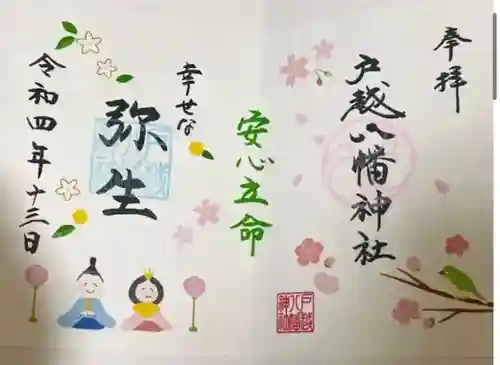 奉拝
戸越八幡神社
安心立命
幸せな
弥生
令和四年十三日
戸越
八幡
神社